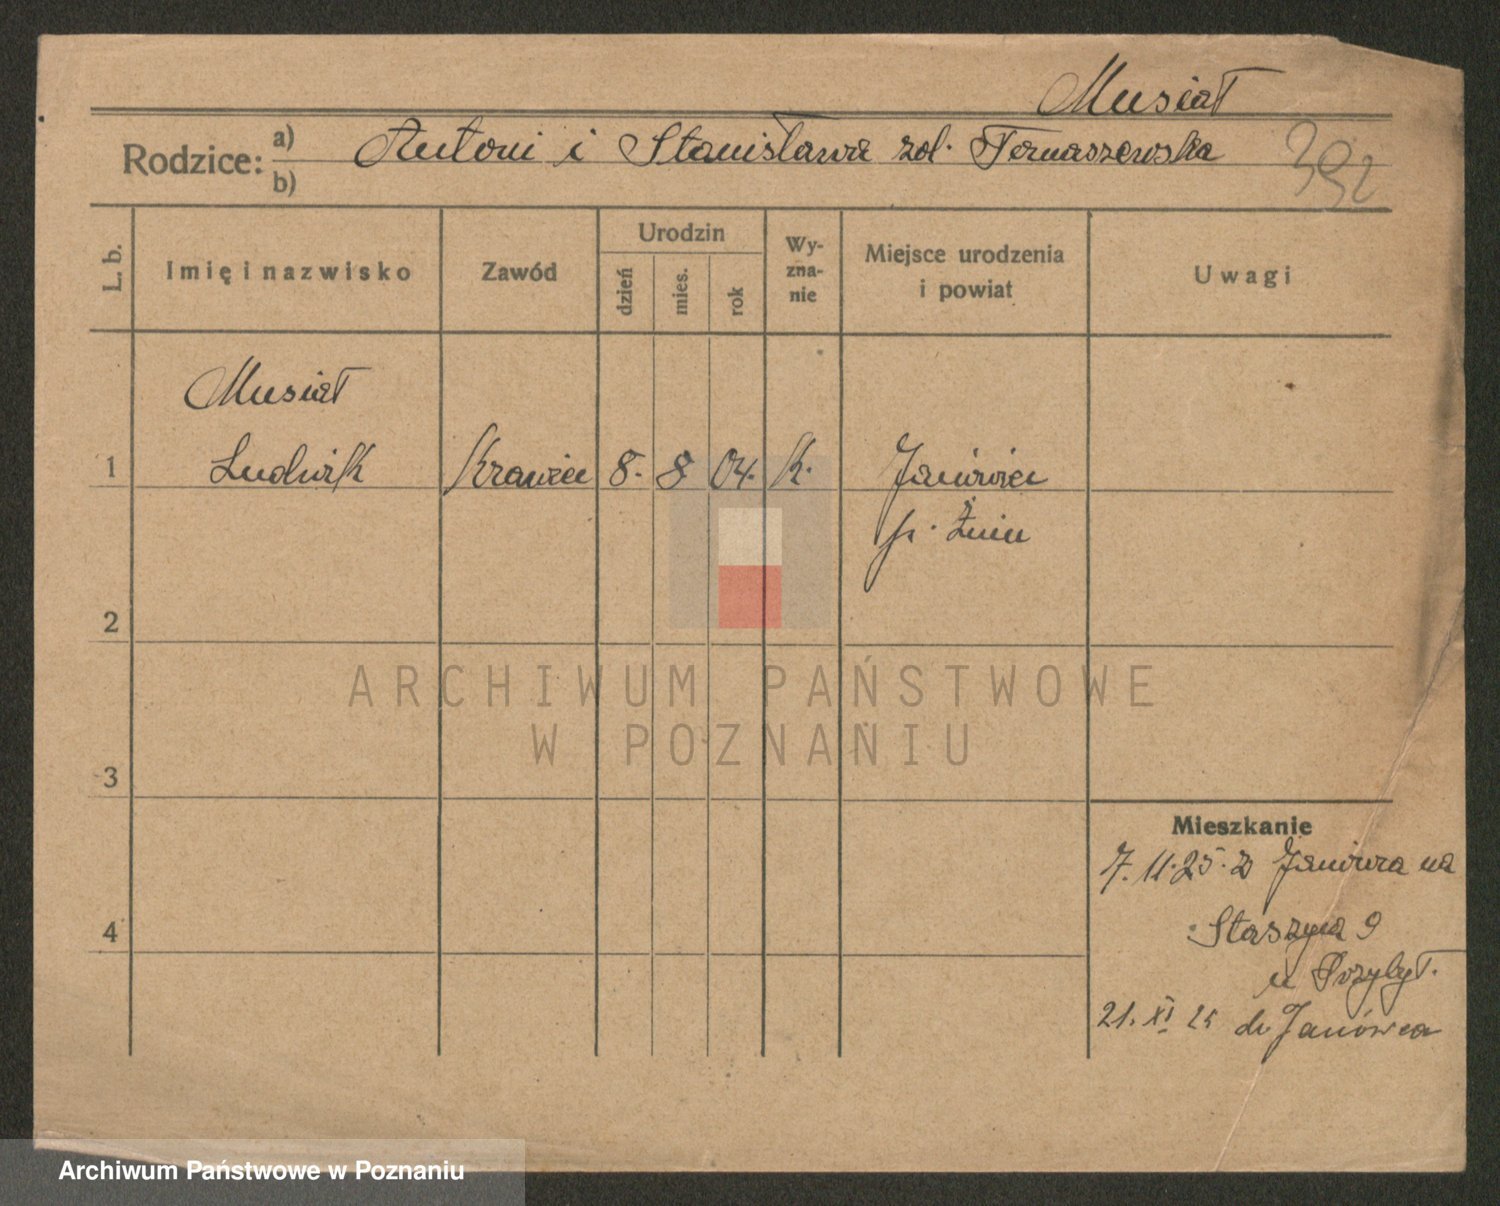 Musiał
Rodzice: a) Antoni i Stanisława zd. Tomaszewska
b)
392
L. b.
Imię i nazwisko
Zawód
Urodzin
dzień
mies.
rok
Wy-
zna-
nie
Miejsce urodzenia
i powiat
Uwagi
Musiał
1 Ludwik Krawiec 8. 8 04. K. Janówiec
p. Żnin
2
3
4
ARCHIWUM PAŃSTWOWE
W POZNANIU
Mieszkanie
7.11.25. z Janówca na
Staszyca 9
u Przybył.
21. XI 25 do Janówca
Archiwum Państwowe w Poznaniu